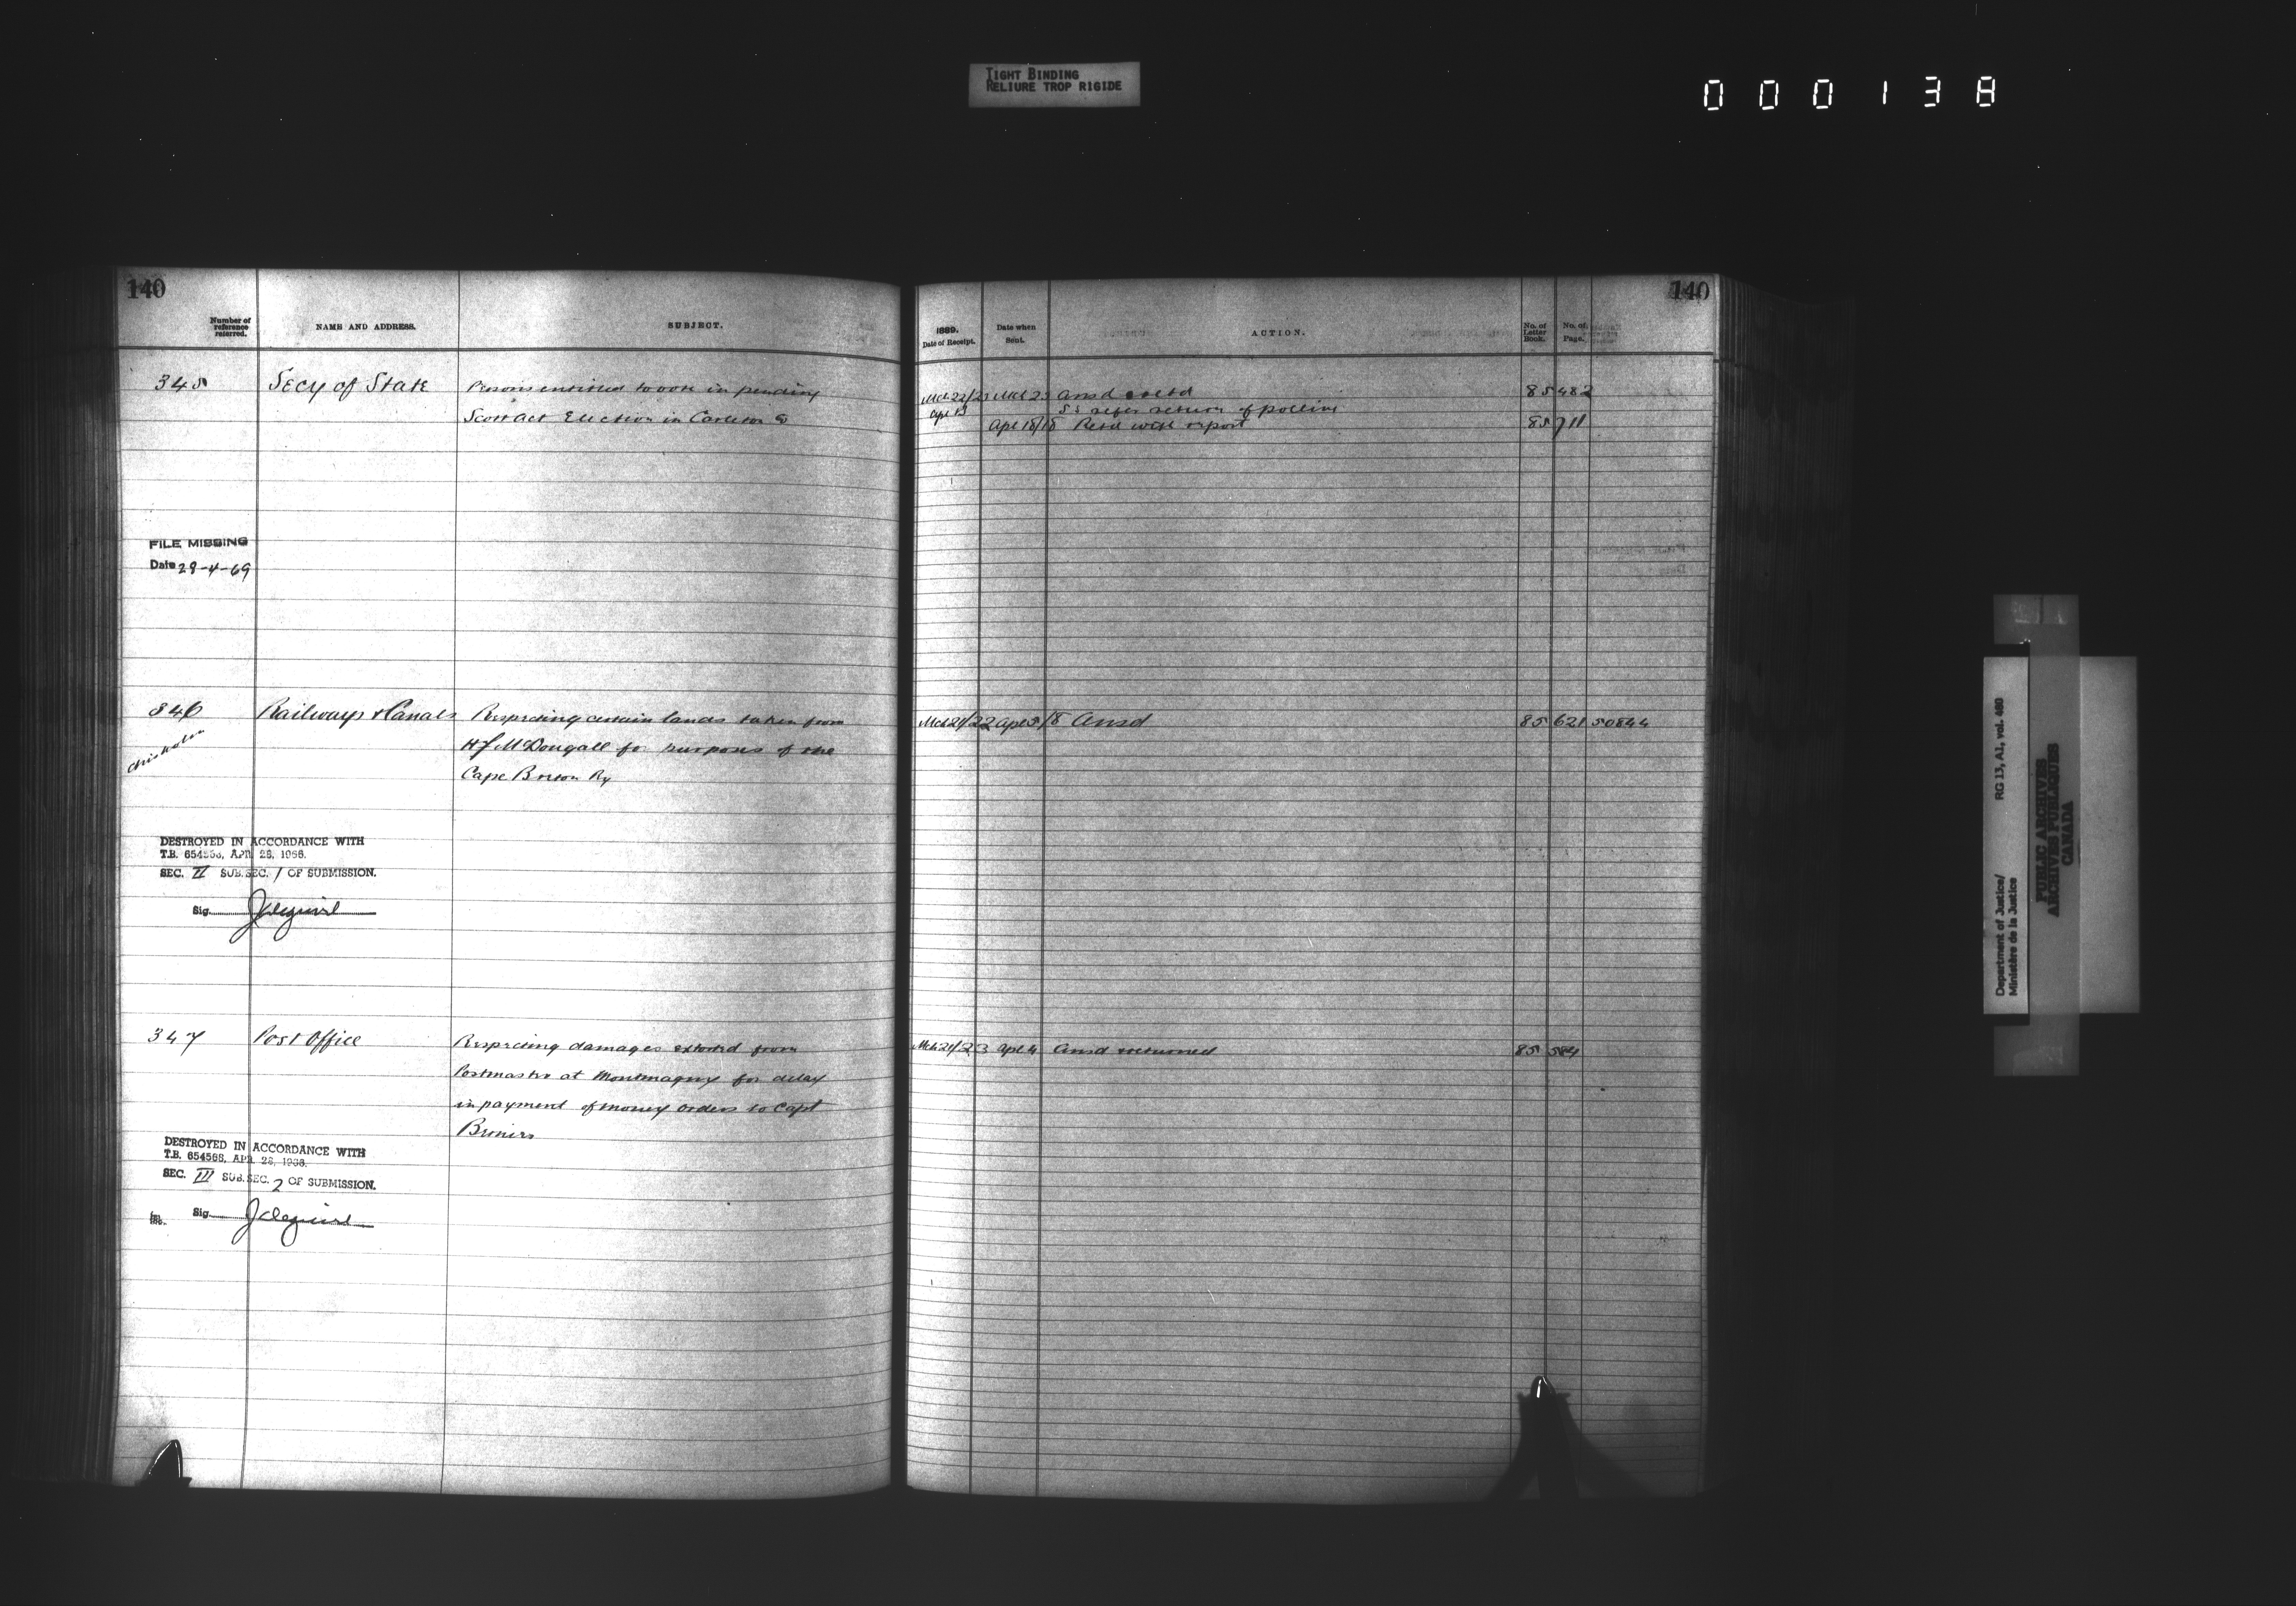 TIGHT BINDING
RELIURE TROP RIGIDE
000138
140
Number of reference referred.
NAME AND ADDRESS.
SUBJECT.
345 Secy of State Persons entitled to vote in pending
Scott Act Election in Carleton Co
FILE MISSING
Date 28-4-69
346 Railways & Canals Respecting certain lands taken from
Chisholm
H J McDougall for purposes of the
Cape Breton Ry
DESTROYED IN ACCORDANCE WITH
T.B. 654568, APR. 28, 1966.
SEC. II SUB.SEC. 1 OF SUBMISSION.
Sig.
347 Post Office Respecting damages extorted from
Postmaster at Montmagny for delay
in payment of money orders to Capt
DESTROYED IN ACCORDANCE WITH
T.B. 654568, APR. 28, 1966.
SEC. III SUB.SEC. 2 OF SUBMISSION.
Sig.
140
1889.
Date of Receipt.
Date when Sent.
ACTION.
No. of Letter Book.
No. of Page.
Mch 22/23 Mch 23 Ansd & retd 85 482
Apl 13 S.S. refer return of polling
Apl 18/18 Retd with report 85 711
Mch 21/22 Apl 5/8 Ansd 85 621 50844
Mch 21/23 Apl 4 Ansd & returned 85 584
Department of Justice/ RG 13, A1, vol. 460
Ministère de la Justice
PUBLIC ARCHIVES
ARCHIVES PUBLIQUES
CANADA